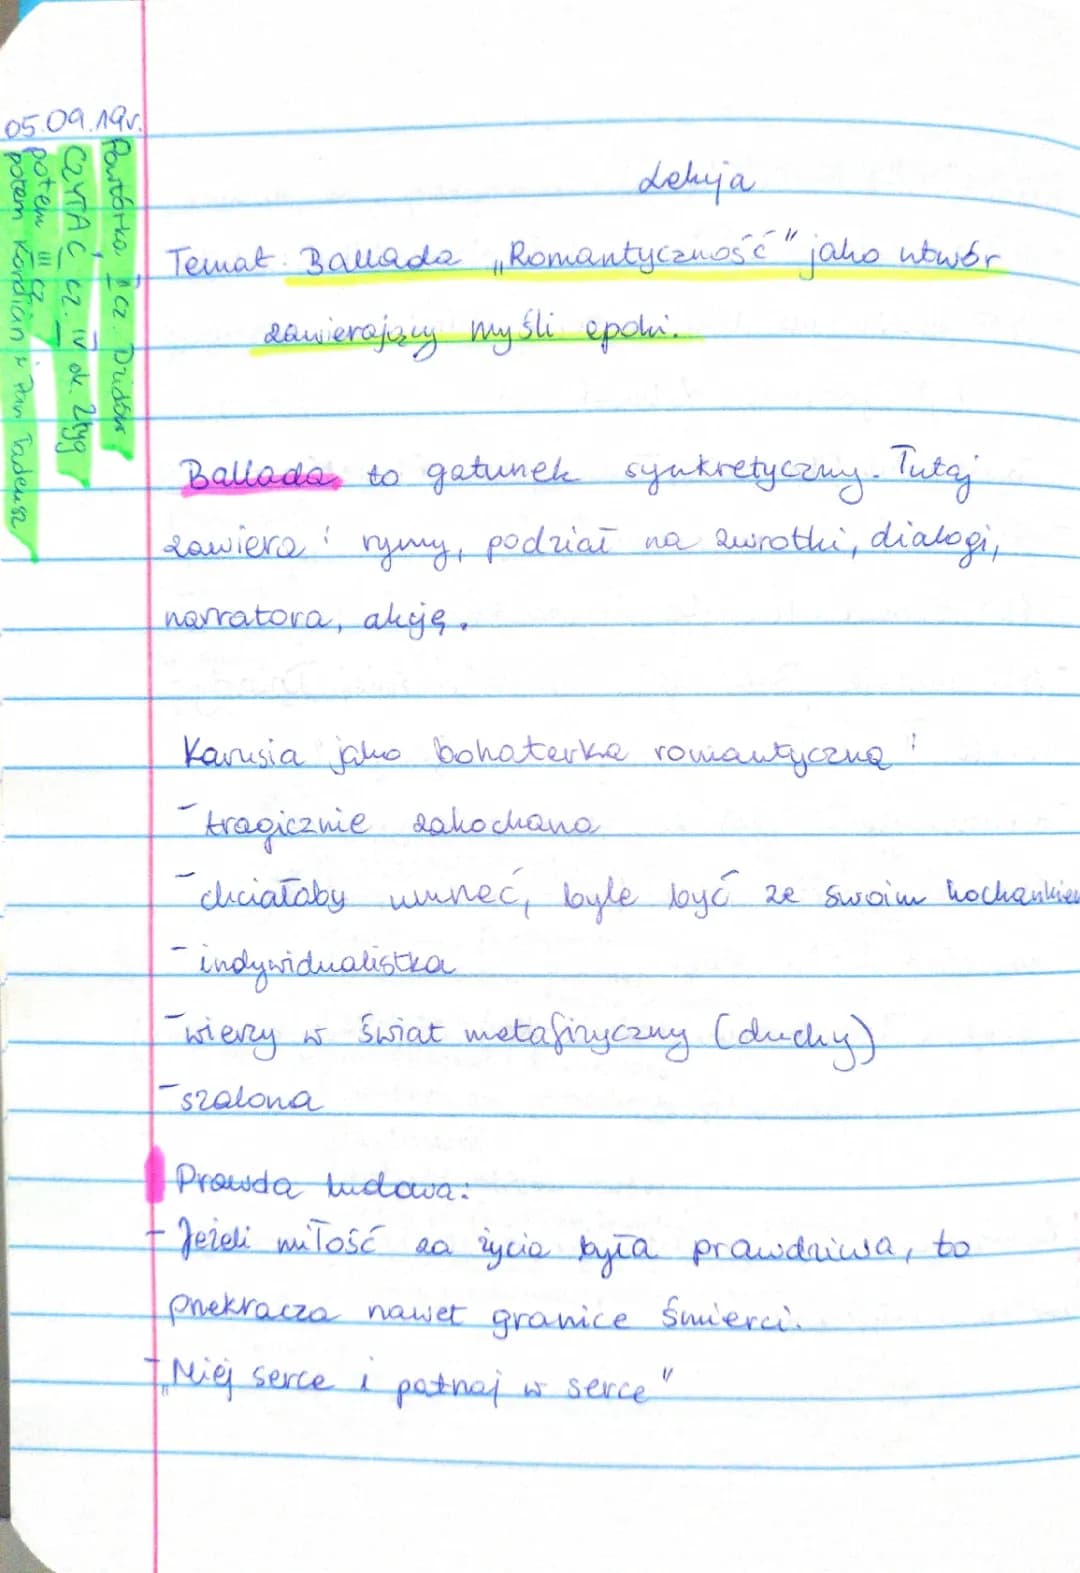 05.09.19r.
Powtórka II cz. Dziadów
CZYTAĆ cz. IV ok. 2tyg
potem III cz.
potem Kordian i Pan Tadeusz
Lekcja
Temat: Ballada „Romantyczność" jako utwór
zawierający myśli epoki.
Ballada to gatunek synkretyczny. Tutaj
zawiera: rymy, podział na zwrotki, dialogi,
narratora, akcję.
Karusia jako bohaterka romantyczna:
- tragicznie zakochana
- chciałaby umrzeć, byle być ze swoim kochankiem
- indywidualistka
- wierzy w świat metafizyczny (duchy)
- szalona
Prawda ludowa:
- Jeżeli miłość za życia była prawdziwa, to
przekracza nawet granice śmierci.
- „Miej serce i patrzaj w serce"